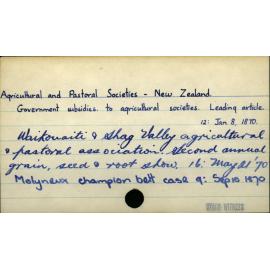 Agricultural and Pastoral Societies - New Zealand.
Government subsidies to agricultural societies. Leading article.
12: Jan 8, 1870.
Waikouaiti & Shag Valley agricultural
& pastoral association. Second annual
grain, seed & root show. 16: May 21 '70
Molyneux champion belt case 9: Sep 10 1870